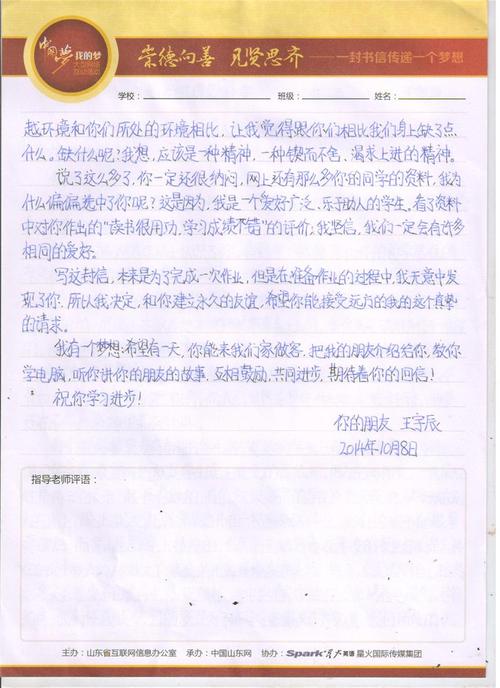 中国梦 我的梦
崇德向善 见贤思齐 一封书信传递一个梦想
学校： 班级： 姓名：
越环境和你们所处的环境相比，让我觉得跟你们相比我们身上缺了点
什么。缺什么呢？我想，应该是一种精神，一种锲而不舍、渴求上进的精神。
说了这么多了，你一定还很纳闷，网上还有那么多你的同学的资料，我为
什么偏偏选中了你呢？这是因为，我是一个爱好广泛、乐于助人的学生，看了资料
中对你作出的“读书很用功，学习成绩不错”的评价，我坚信，我们一定会有许多
相同的爱好。
写这封信，本来是为了完成一次作业，但是在准备作业的过程中，我无意中发
现了你。所以我决定，和你建立永久的友谊，希望你能接受远方的我的这个真挚
的请求。
我有一个梦想：希望有一天，你能来我们家做客，把我的朋友介绍给你，教你
学电脑，听你讲你的朋友的故事，互相鼓励，共同进步，期待着你的回信！
祝你学习进步！
你的朋友 王宇辰
2014年10月8日
指导老师评语：
主办：山东省互联网信息办公室 承办：中国山东网 协办：Spark星火英语 星火国际传媒集团